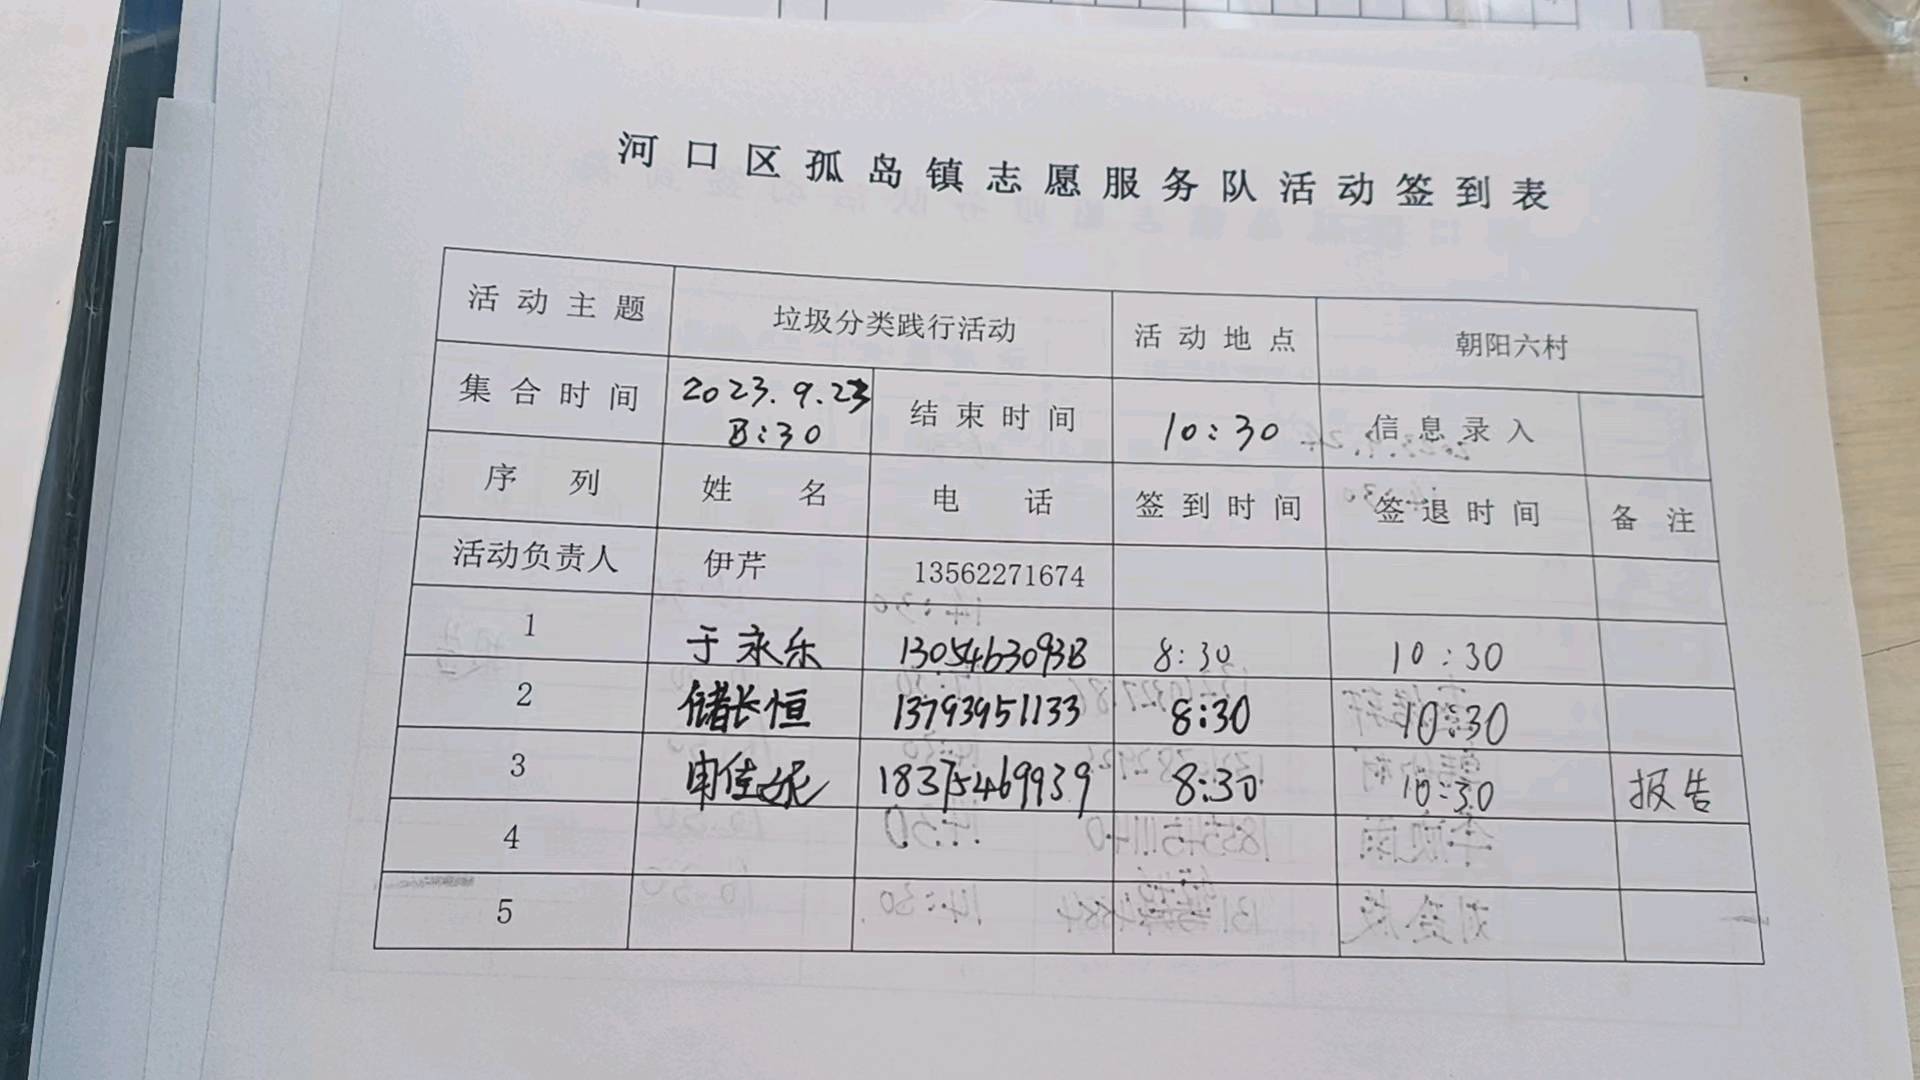 河口区孤岛镇志愿服务队活动签到表
活动主题 垃圾分类践行活动 活动地点 朝阳六村
集合时间 2023.9.23 8:30 结束时间 10:30 信息录入
序列 姓名 电话 签到时间 签退时间 备注
活动负责人 伊芹 13562271674
1 于永乐 13054630938 8:30 10:30
2 储长恒 13793951133 8:30 10:30
3 申佳妮 18375469939 8:30 10:30 报告
4
5